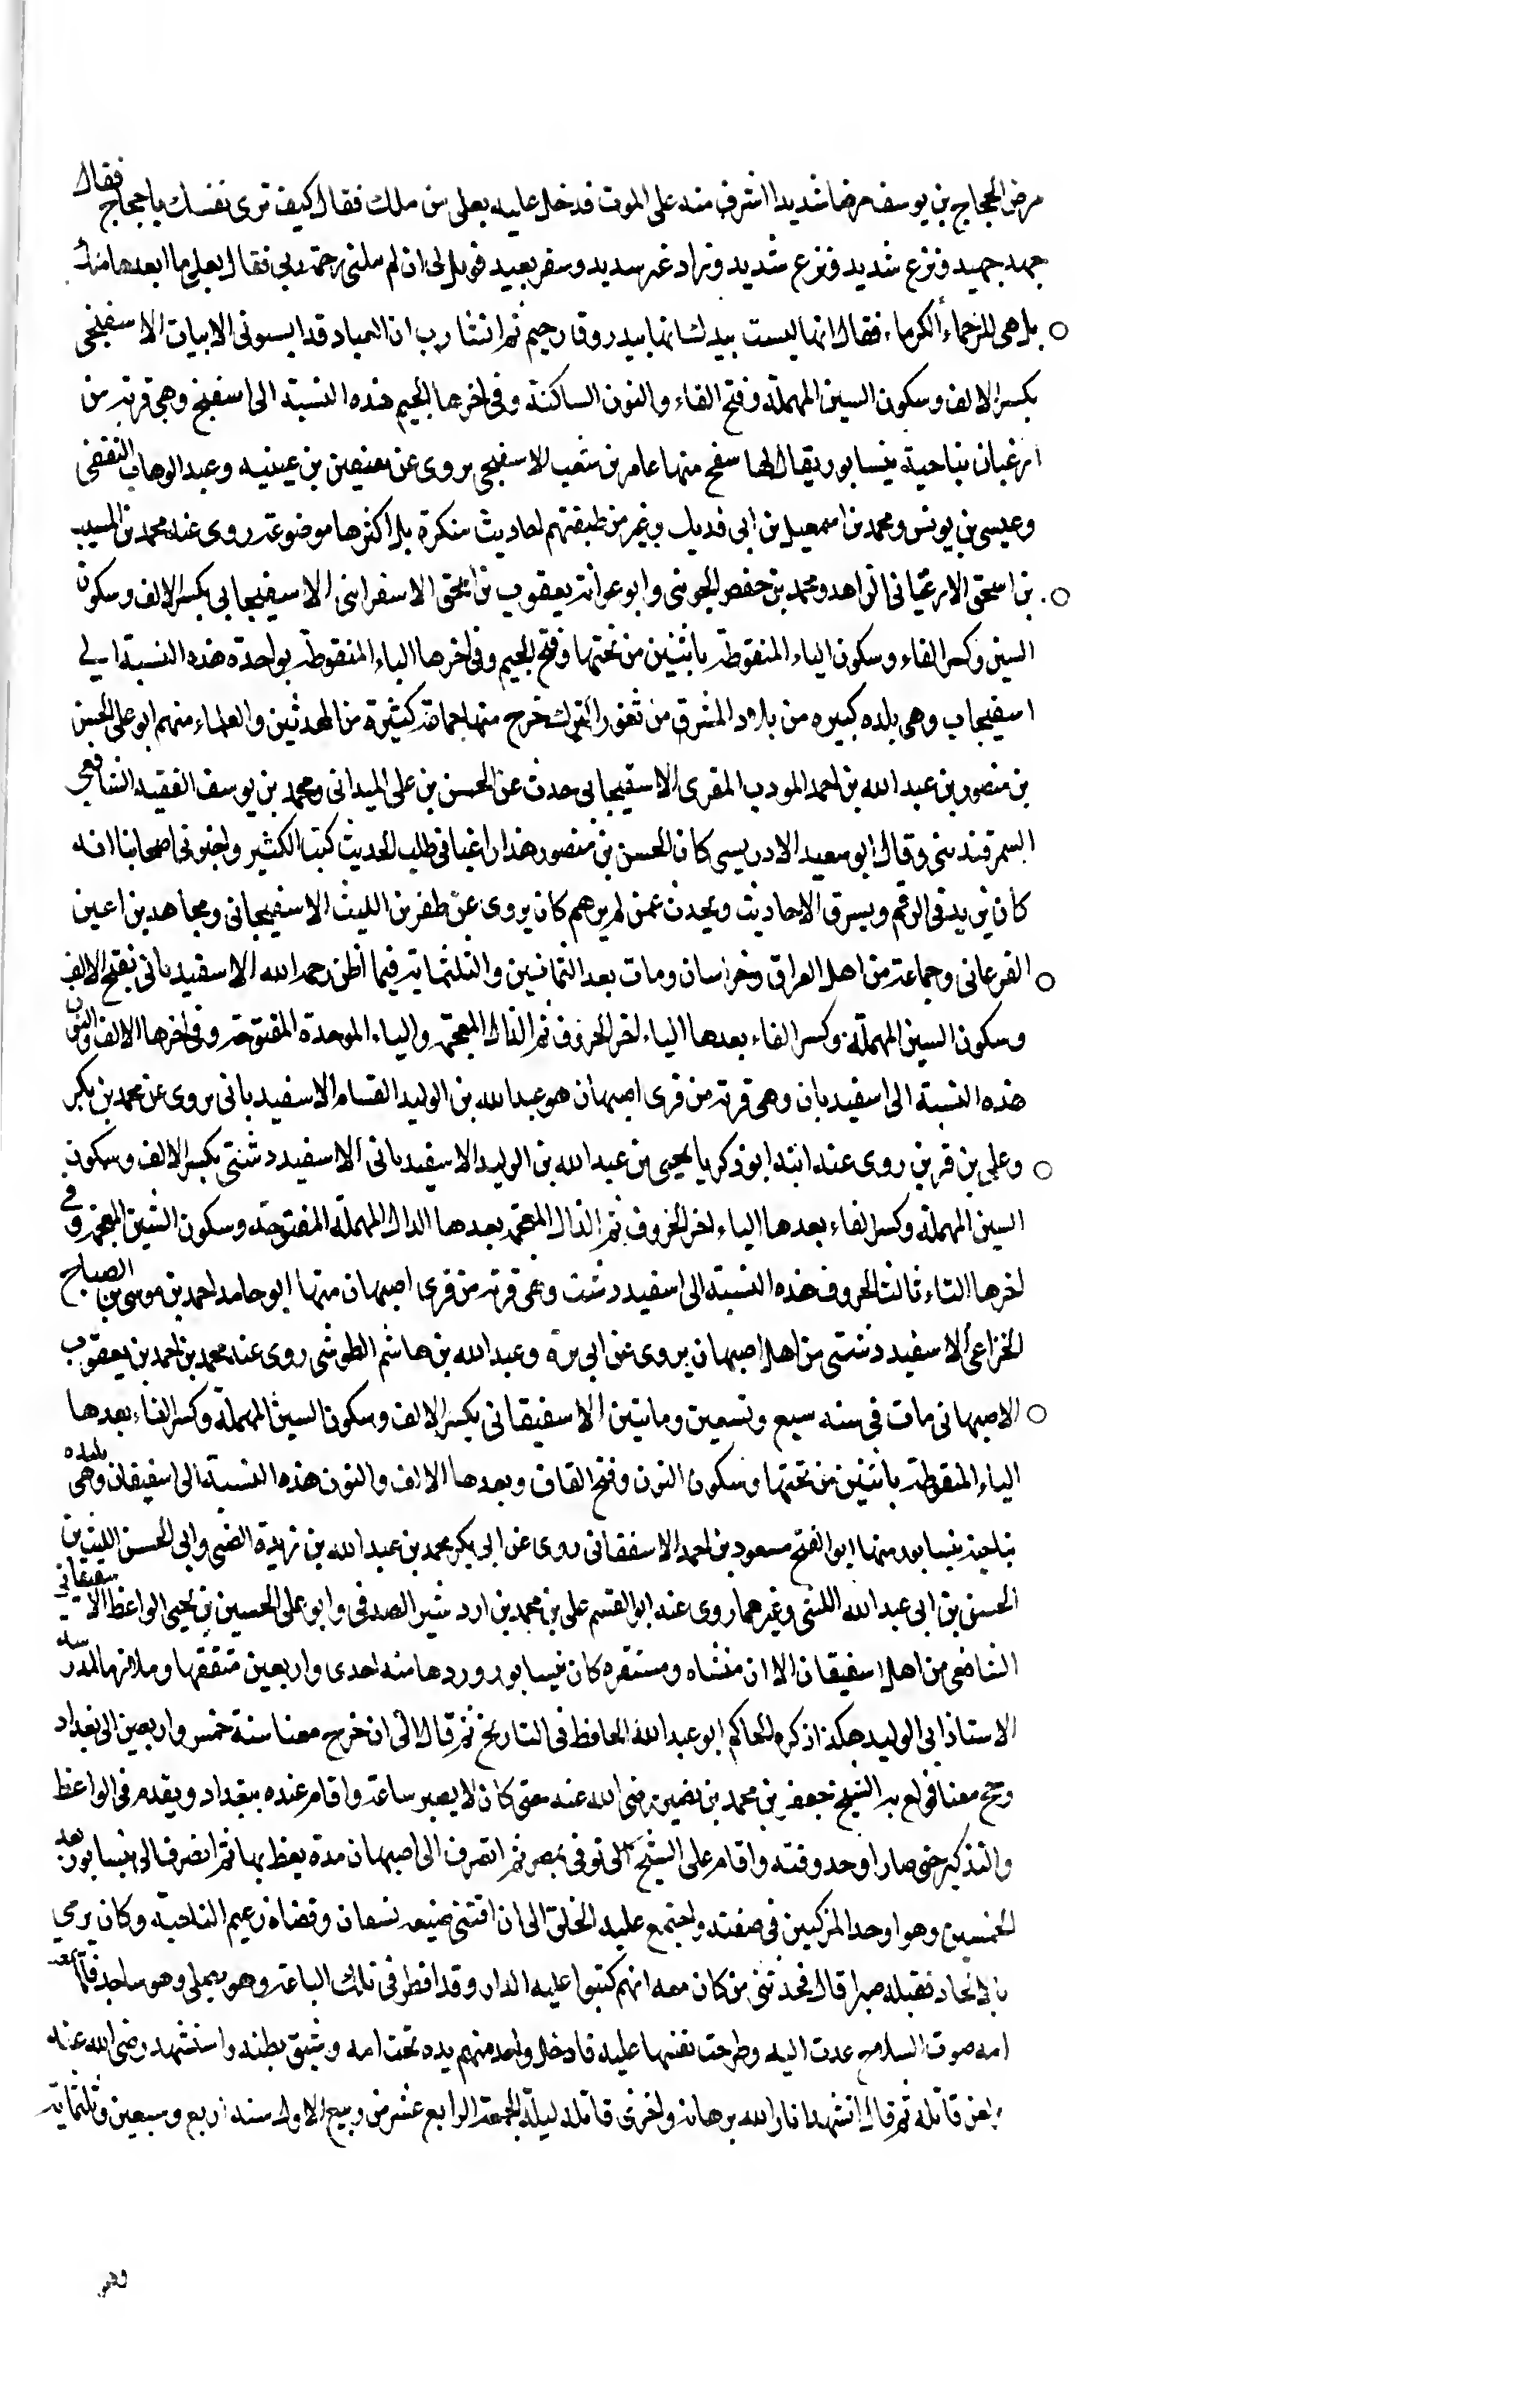 مرض الحجاج بن يوسف مرضا شديدا اشرف منه على الموت فدخل عليه يعلى بن ملك فقال كيف ترى نفسك يا حجاج فقال
جهد جهيد ونزع شديد ونزع شديد وزاد غير سديد وسفر بعيد فويل لى ان لم ربى فقال يعلى ما ابعدها منك
بل هى للرحماء الكرماء فقال انها ليست بيدك انها بيد روف رحيم ثم انشا رب ان العباد قد ايسونى الابيات الاسفنجى
بكسر الالف وسكون السين المهملة وفتح الفاء والنون الساكنة وفى اخرها الجيم هذه النسبة الى اسفنج وهى قرية من
ارغيان بناحية نيسابور يقال لها سفنج منها عامر بن شعيب الاسفنجى يروى عن سفين بن عيينيه وعبد الوهاب الثقفى
وعيسى بن يونس ومحمد بن اسمعيل بن ابى فديك وغيرهم من طبقتهم احاديث منكرة بل اكثرها موضوعة روى عنه محمد بن المسيب
بن اسحق الارغيانى الزاهد ومحمد بن حفص الجوينى وابو عوانة يعقوب بن اسحق الاسفراينى الاسفيجابى بكسر الالف وسكون
السين وكسر الفاء وسكون الياء المنقوطة باثنين من تحتها وفتح الجيم وفى اخرها الباء المنقوطة بواحدة هذه النسبة الى
اسفيجاب وهى بلده كبيره من بلاد المشرق من ثغور الترك خرج منها جماعة كثيرة من المحدثين والعلماء منهم ابو على الحسن
بن منصور بن عبد الله بن احمد المودب المقرى الاسفيجابى حدث عن الحسن بن على الميدانى ومحمد بن يوسف الفقيه الشافعى
السمرقندى وقال ابو سعيد الادريسى كان الحسن بن منصور هذا راغبا فى طلب الحديث كتب الكثير واخبرنى اصحابنا انه
كان يزيد فى الرقم ويسرق الاحاديث ويحدث عمن لم يرهم كان يروى عن ظفر بن الليث الاسفيجابى ومجاهد بن اعين
الفرغانى وجماعة من اهل العراق وخراسان ومات بعد الثمانين والثلثماية فيما اظن رحمه الله الاسفيذبانى بفتح الالف
وسكون السين المهملة وكسر الفاء بعدها الياء اخر الحروف ثم الذال المعجمة والباء الموحدة المفتوحة وفى اخرها الالف والنون
هذه النسبة الى اسفيذبان وهى قرية من قرى اصبهان هو عبد الله بن الوليد القسام الاسفيذبانى يروى عن محمد بن بكير
وعلى بن قرين روى عنه ابنه ابو زكريا يحيى بن عبد الله بن الوليد الاسفيذبانى الاسفيذدشتى بكسر الالف وسكون
السين المهملة وكسر الفاء بعدها الياء اخر الحروف ثم الذال المعجمة بعدها الدال المهملة المفتوحة وسكون الشين المعجمة وفى
اخرها التاء ثالث الحروف هذه النسبة الى اسفيذدشت وهى قرية من قرى اصبهان منها ابو حامد احمد بن موسى بن الصباح
الخزاعى الاسفيذدشتى من اهل اصبهان يروى عن ابى برة وعبد الله بن هاشم الطوسى روى عنه محمد بن احمد بن يعقوب
الاصبهانى مات فى سنه سبع وتسعين ومايتين الاسفينقانى بكسر الالف وسكون السين المهملة وكسر الفاء بعدها
الياء المنقوطة باثنين من تحتها وسكون النون وفتح القاف وبعدها الالف والنون هذه النسبة الى اسفينقان وهى بليده
بناحية نيسابور منها ابو الفتح مسعود بن احمد الاسفينقانى روى عن ابى بكر محمد بن عبد الله بن زيدة الضبى وابى الحسن الليث بن
الحسن بن ابى عبد الله الليثى وغيرهما روى عنه ابو القسم على بن محمد بن اردشير الصدفى وابو على الحسين بن يحيى الواعظ الاسفينقانى
الشافعى من اهل اسفينقان الا ان منشاه ومستقره كان نيسابور وردها سنه احدى واربعين متفقها وملازما لمدرسه
الاستاذ ابى الوليد هكذا ذكره الحاكم ابو عبد الله الحافظ فى التاريخ ثم قال الى ان خرج معنا سنة خمس واربعين الى بغداد
وحج معنا الشيخ جعفر بن محمد بن نصير رضى الله عنه حتى كان لا يصبر ساعة واقام عنده ببغداد ويقدم فى الواعظ
والتذكير حتى صار اوحد وقته واقام على الشيخ الى توفى بمصر ثم انصرف الى اصبهان مدة يعظ بها ثم انصرف الى نيسابور بعد
الخمسين وهو اوحد المذكرين فى صنفته واجتمع عليه الخلق الى ان اقتنى ضيعه وقضاه زعيم الناحية وكان يرمى
بالالحاد فقبله صبرا قال فحدثنى من كان معه انهم كتبوا عليه الدار وقد افطر فى تلك الساعة وهو يصلى وهو ساجد فلما سمعت
امه صوت السلاح عدت اليه وطرحت نفسها عليه فادخل واحد منهم يده تحت امه وشق بطنه واستشهد رضى الله عنه
ولعن قاتله ثم قال استشهد انار الله برهانه واخزى قاتله ليلة الجمعة الرابع عشر من ربيع الاول سنه اربع وسبعين وثلثماية
وهو